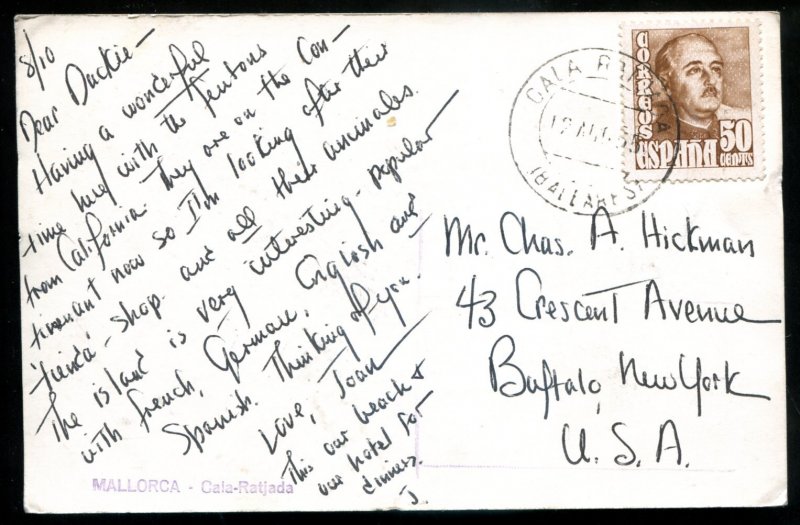 8/10
Dear Duckie—
Having a wonderful
time here with the Fentons
from California. They are on the Con-
tinent now so I'm looking after their
'tienda'-shop and all their animales.
The island is very interesting-popular
with French, German, English and
Spanish. Thinking of you.
Love, Joan
This our beach &
our hotel for
dinner.
J.
MALLORCA - Cala-Ratjada
CORREOS
ESPAÑA
50
CENTS
CALA
(BALEARES)
Mr. Chas. A. Hickman
43 Crescent Avenue
Buffalo, New York
U.S.A.